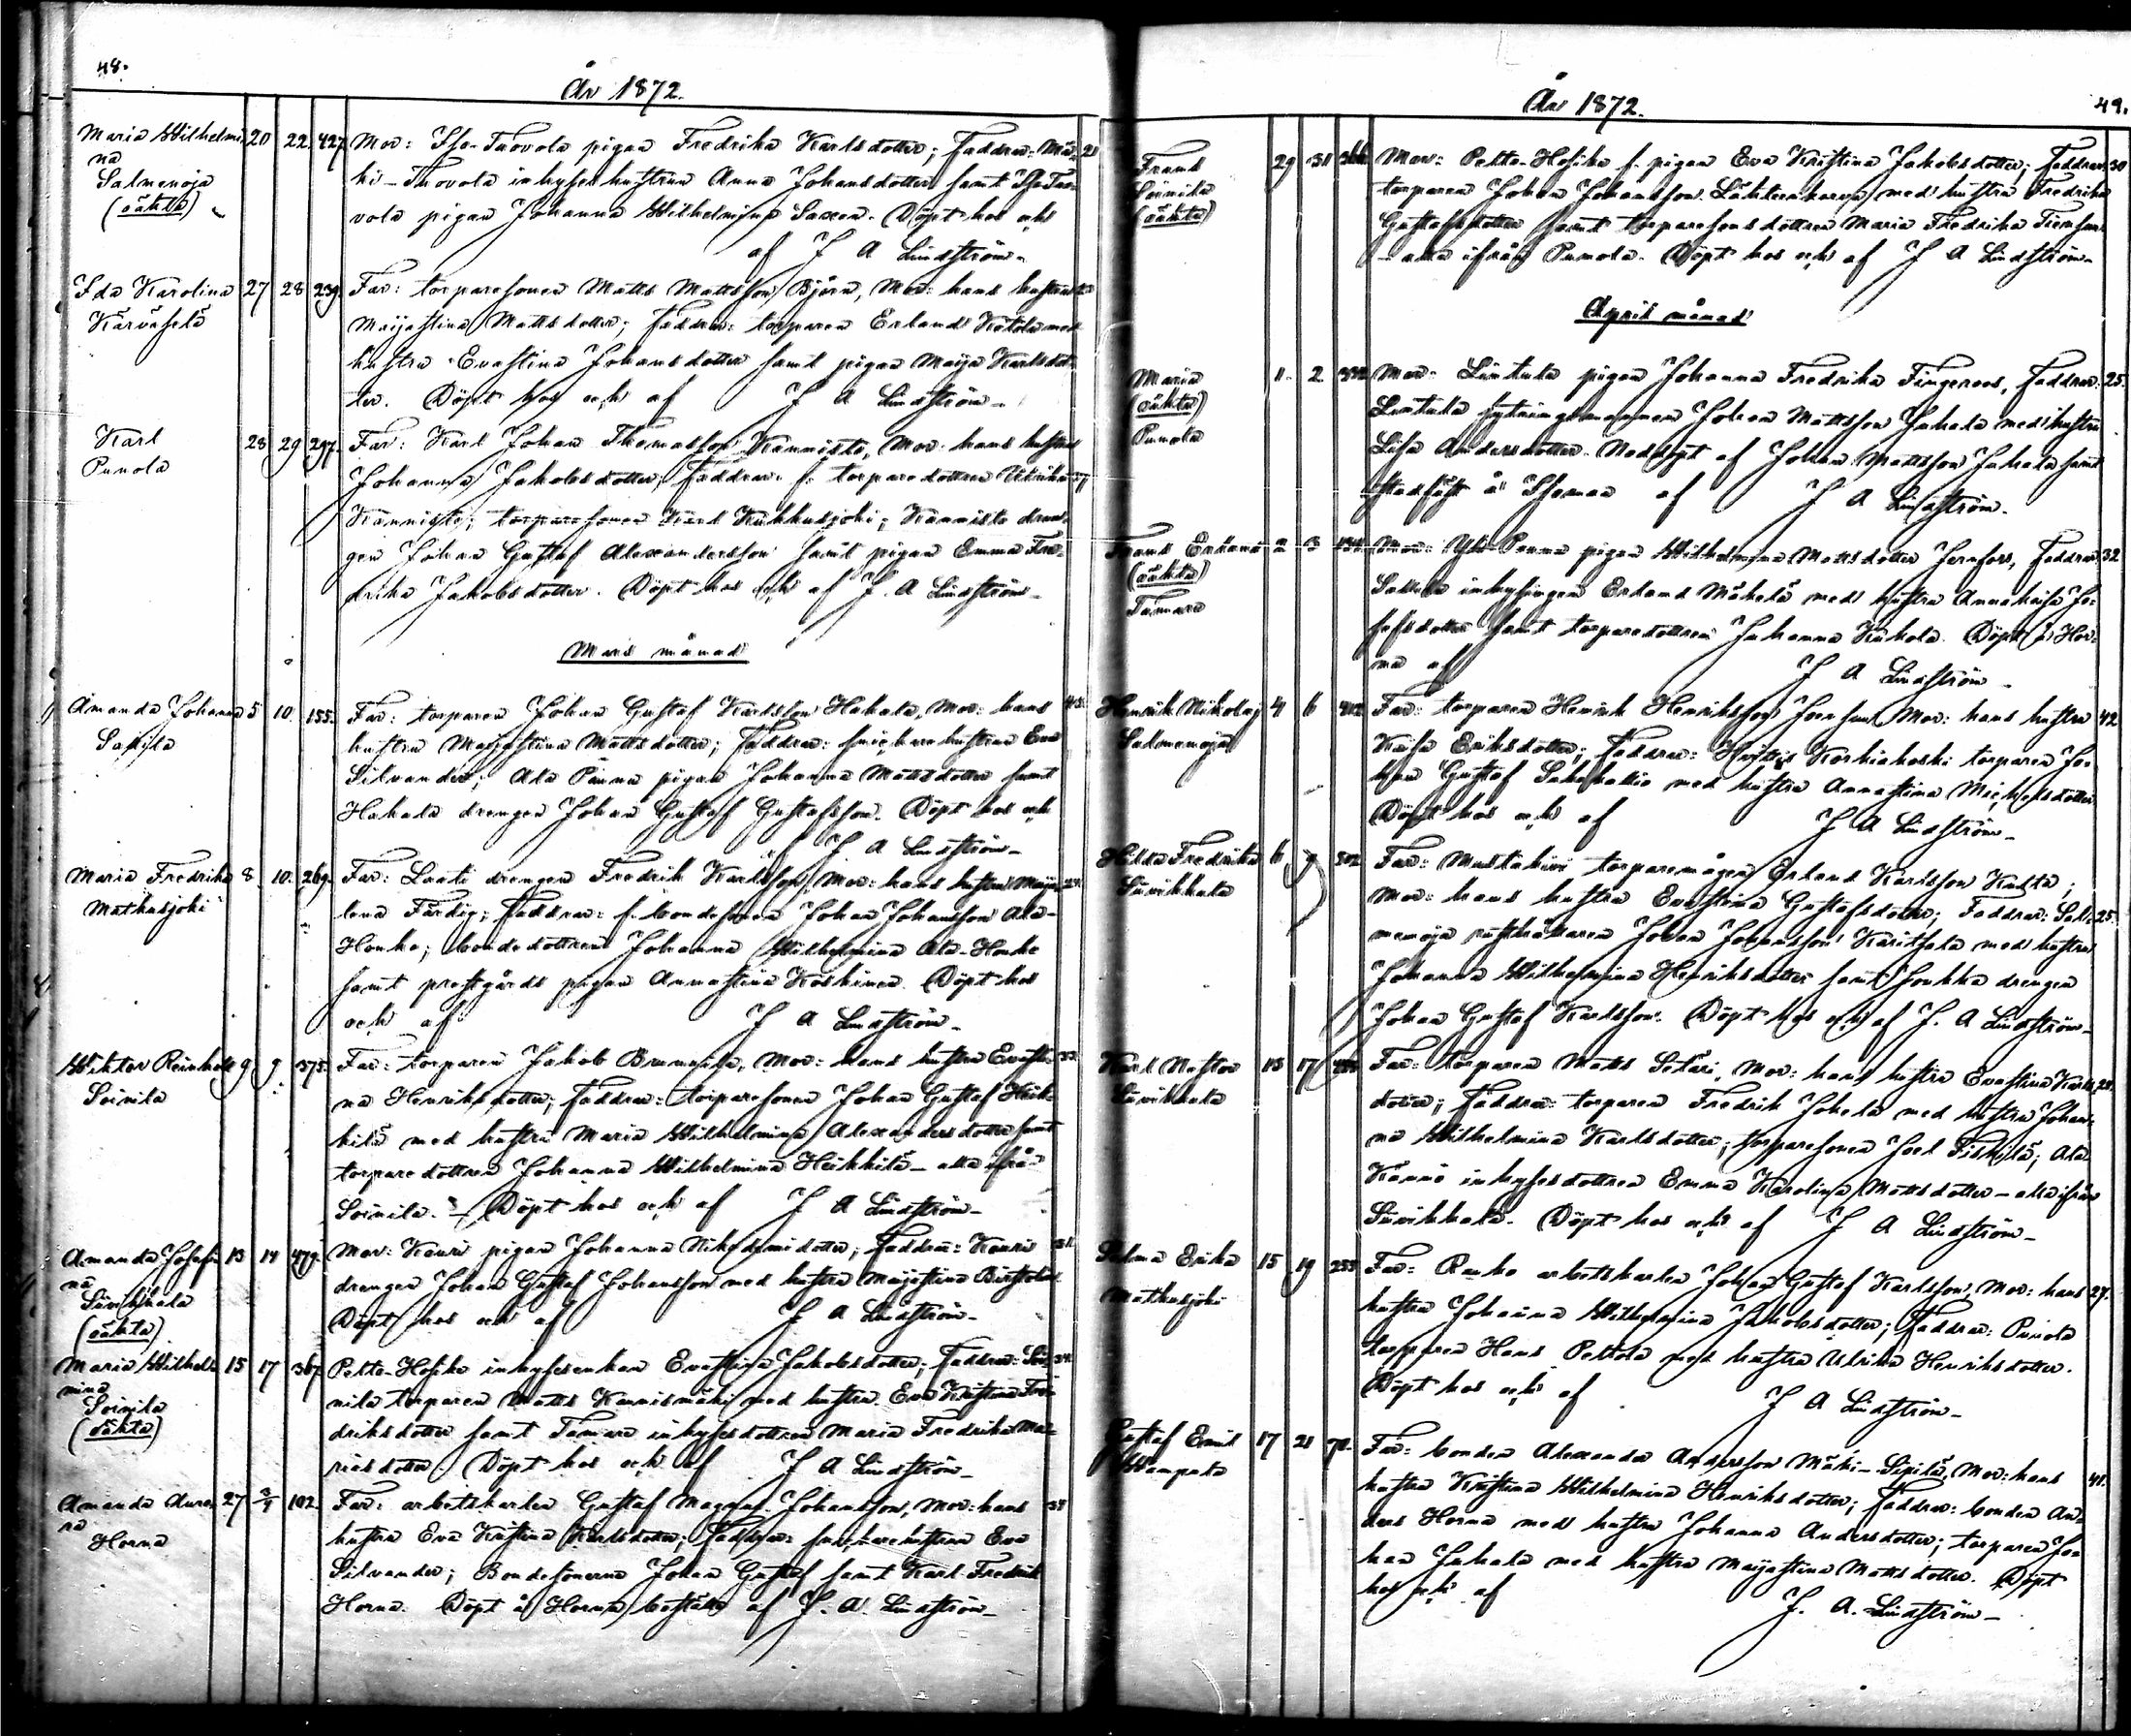 48.
År 1872.
Maria Wilhelmi 20 22. 427. Mor: Iso-Tuovola pigan Fredrika Karlsdotter; Faddrar: Mä- 21
na
Salmenoja
(oäkta)
ki-Tuovola inhyses hustrun Anna Johansdotter samt Iso Tuo-
vola pigan Johanna Wilhelmina Saxen. Döpt hos och
af J A Lindström
Ida Karolina 27 28 239. Far: torparesonen Matts Mattsson Björn, Mor: hans hustru
Kärväselä
Maijastina Mattsdotter; Faddrar: torparen Erland Ketola med
hustru Evastina Johansdotter samt pigan Maija Karlsdot-
ter. Döpt hos och af J A Lindström
Karl 28 29 297. Far: Karl Johan Thomasson Kannisto, Mor: hans hustru
Punola
Johanna Jakobsdotter; Faddrar: f. torparedottren Ulrika 37
Kannisto; torparesonen Karl Kukkusjoki; Kannisto dren-
gen Johan Gustaf Alexandersson samt pigan Emma Fre-
drika Jakobsdotter. Döpt hos och af J. A Lindström
Mars månad
Amanda Johanna 5 10. 155. Far: torparen Johan Gustaf Karlsson Hakala, Mor: hans 43.
hustru Maijastina Mattsdotter; Faddrar: snickare hustrun Eva
Silvander; Ala Penna pigan Johanna Mattsdotter samt
Hakala drengen Johan Gustaf Gustafsson. Döpt hos och
af J A Lindström
Maria Fredrika 8 10. 269. Far: Laati drengen Fredrik Karlsson, Mor: hans hustru Maija
Mathusjoki
lena Färdig; Faddrar: f. bondesonen Johan Johansson Ala-
Honko; bondedottren Johanna Wilhelmina Ala-Honko
samt prestgårds pigan Annastina Koskinen. Döpt hos
och af J A Lindström
Wiktor Reinhold 9 9 375. Far: torparen Jakob Brunnila, Mor: hans hustru Evasti- 33
Soinila
na Henriksdotter; Faddrar: torparesonen Johan Gustaf Heik-
kilä med hustru Maria Wilhelmina Alexandersdotter samt
torparedottren Johanna Wilhelmina Heikkilä - alla ifrån
Soinila. - Döpt hos och af J A Lindström
Amanda Josefi 13 14 479. Mor: Kauri pigan Johanna Nikodemidotter; Faddrar: Kauri 31.
na
Suvikkala
(oäkta)
drengen Johan Gustaf Johansson med hustru Maijastina Bertholin.
Döpt hos och af J A Lindström
Maria Wilhel 15 17 367. Petto-Hosike inhysesenkan Evastina Jakobsdotter; Faddrar: Soi- 34
mina
Soinila
(oäkta)
nila torparen Matts Kannismäki med hustru Eva Kristina Fre-
driksdotter samt Tamare inhysesdottren Maria Fredrika Ma-
riasdotter. Döpt hos och af J A Lindström
Amanda Auro 27 3/4 102. Far: arbetskarlen Gustaf Magnus Johansson, Mor: hans 38
ra
Horna
hustru Eva Kristina Karlsdotter; Faddrar: snickarehustrun Eva
Silvander; Bondesönerna Johan Gustaf samt Karl Fredrik
Horna. Döpt å Horna boställe af J. A. Lindström
År 1872.
49.
Frans 29 31 366. Mor: Petto-Hosike f. pigan Eva Kristina Jakobsdotter; Faddrar: 30
Soinila
(oäkta)
torparen Johan Johansson Lähteenkorva med hustru Fredrika
Gustafsdotter samt torparesonsdottren Maria Fredrika
- alla ifrån Punola. Döpt hos och af J A Lindström
April månad
Maria 1. 2. Mor: Lintula pigan Johanna Fredrika Fingerroos, Faddrar: 25.
(oäkta)
Punola
Lintula sytningsmannen Johan Mattsson Jakala med hustru
Lisa Andersdotter. Nöddöpt af Johan Mattsson Jakala samt
stadfäst å Isomaa af J A Lindström.
Frans Erland 2 3 Mor: Yli-Penna pigan Wilhelmina Mattsdotter Jernfors, Faddrar: 32
(oäkta)
Tamare
Sattula inhysingen Erland Mäkelä med hustru Annakaisa Jo-
sefsdotter samt torparedottren Johanna Kukola. Döpt å Hor-
na af J A Lindström
Henrik Nikolai 4 6 412. Far: torparen Henrik Henriksson Joensuu, Mor: hans hustru 42
Salmenoja
Kaisa Eriksdotter; Faddrar: Huittis Korkiakoski torparen Jo-
han Gustaf Sakskallio med hustru Annastina Michelsdotter
Döpt hos och af J A Lindström
Hilda Fredrika 6 9 502. Far: Mustakivi torparemågen Erland Karlsson Kulta;
Suvikkala
Mor: hans hustru Evastina Gustafsdotter; Faddrar: Sal- 25.
menoja rusthållaren Johan Johansson Karitsala med hustru
Johanna Wilhelmina Henriksdotter samt Joukka drengen
Johan Gustaf Karlsson. Döpt hos och af J. A Lindström
Karl Nestor 15 17 Far: torparen Matts Setäri, Mor: hans hustru Evastina Karls- 28.
Suvikkala
dotter; Faddrar: torparen Fredrik Johela med hustru Johan-
na Wilhelmina Karlsdotter; torparesonen Joel Fiskilä; Ala-
Kännö inhysesdottren Emma Karolina Mattsdotter - alla ifrån
Suvikkala. Döpt hos och af J A Lindström
Selma Erika 15 19 255 Far: Rauko arbetskarlen Johan Gustaf Karlsson, Mor: hans 27.
Mathusjoki
hustru Johanna Wilhelmina Jakobsdotter; Faddrar: Punola
torparen Hans Peltola med hustru Ulrika Henriksdotter.
Döpt hos och af J A Lindström
Gustaf Emil 17 21 71. Far: bonden Alexander Andersson Mäki-Sipilä, Mor: hans 41.
Wampula
hustru Kristina Wilhelmina Henriksdotter; Faddrar: bonden An-
ders Horna med hustru Johanna Andersdotter; torparen Jo-
han Jakala med hustru Maijastina Mattsdotter. Döpt
hos och af J. A. Lindström